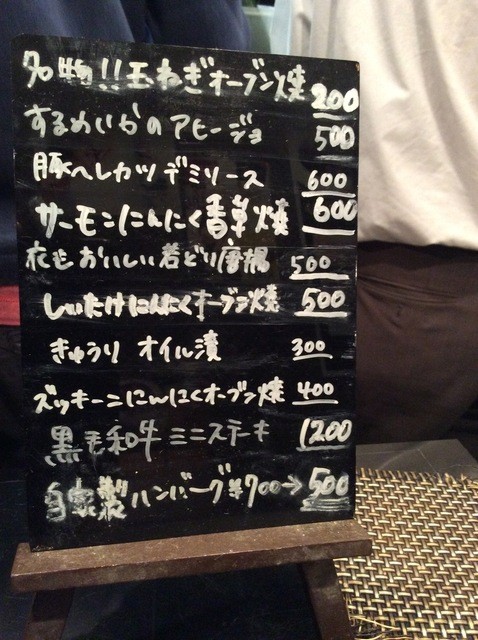 名物!!玉ねぎオーブン焼 200
するめいかのアヒージョ 500
豚ヘレカツデミソース 600
サーモンにんにく香草焼 600
衣もおいしい若どり唐揚 500
しいたけにんにくオーブン焼 500
きゅうり オイル漬 300
ズッキーニにんにくオーブン焼 400
黒毛和牛ミニステーキ 1200
自家製ハンバーグ¥700→500